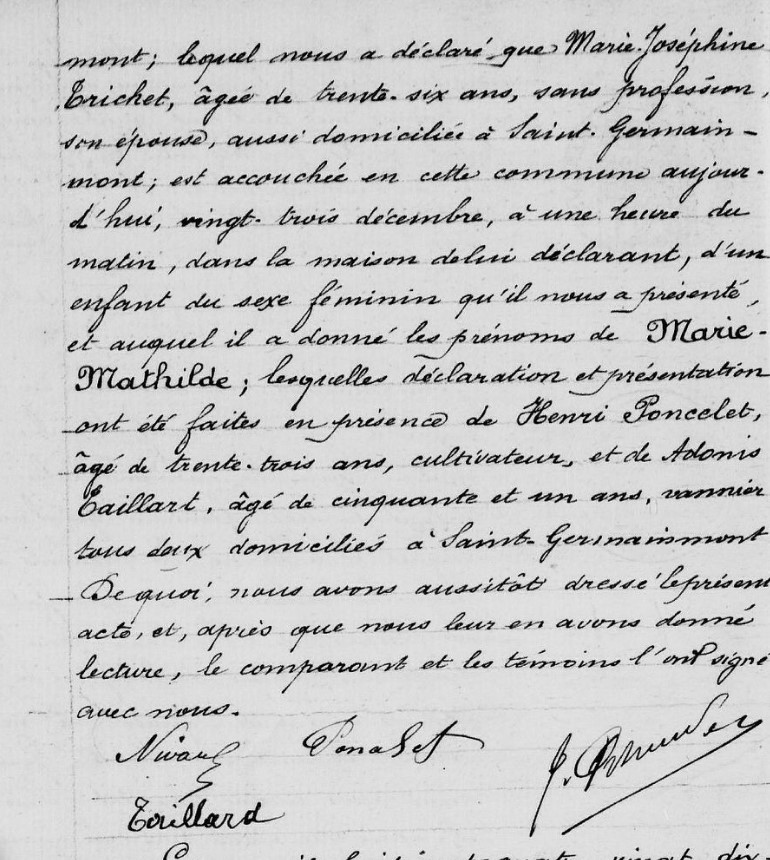 mont; lequel nous a déclaré que Marie-Joséphine
Trichet, âgée de trente-six ans, sans profession,
son épouse, aussi domiciliée à Saint-Germain-
mont; est accouchée en cette commune aujour-
d'hui, vingt-trois décembre, à une heure du
matin, dans la maison de lui déclarant, d'un
enfant du sexe féminin qu'il nous a présenté,
et auquel il a donné les prénoms de Marie-
Mathilde; lesquelles déclaration et présentation
ont été faites en présence de Henri Poncelet,
âgé de trente-trois ans, cultivateur, et de Adonis
Taillart, âgé de cinquante et un ans, vannier
tous deux domiciliés à Saint-Germainmont
De quoi, nous avons aussitôt dressé le présent
acte, et, après que nous leur en avons donné
lecture, le comparant et les témoins l'ont signé
avec nous.